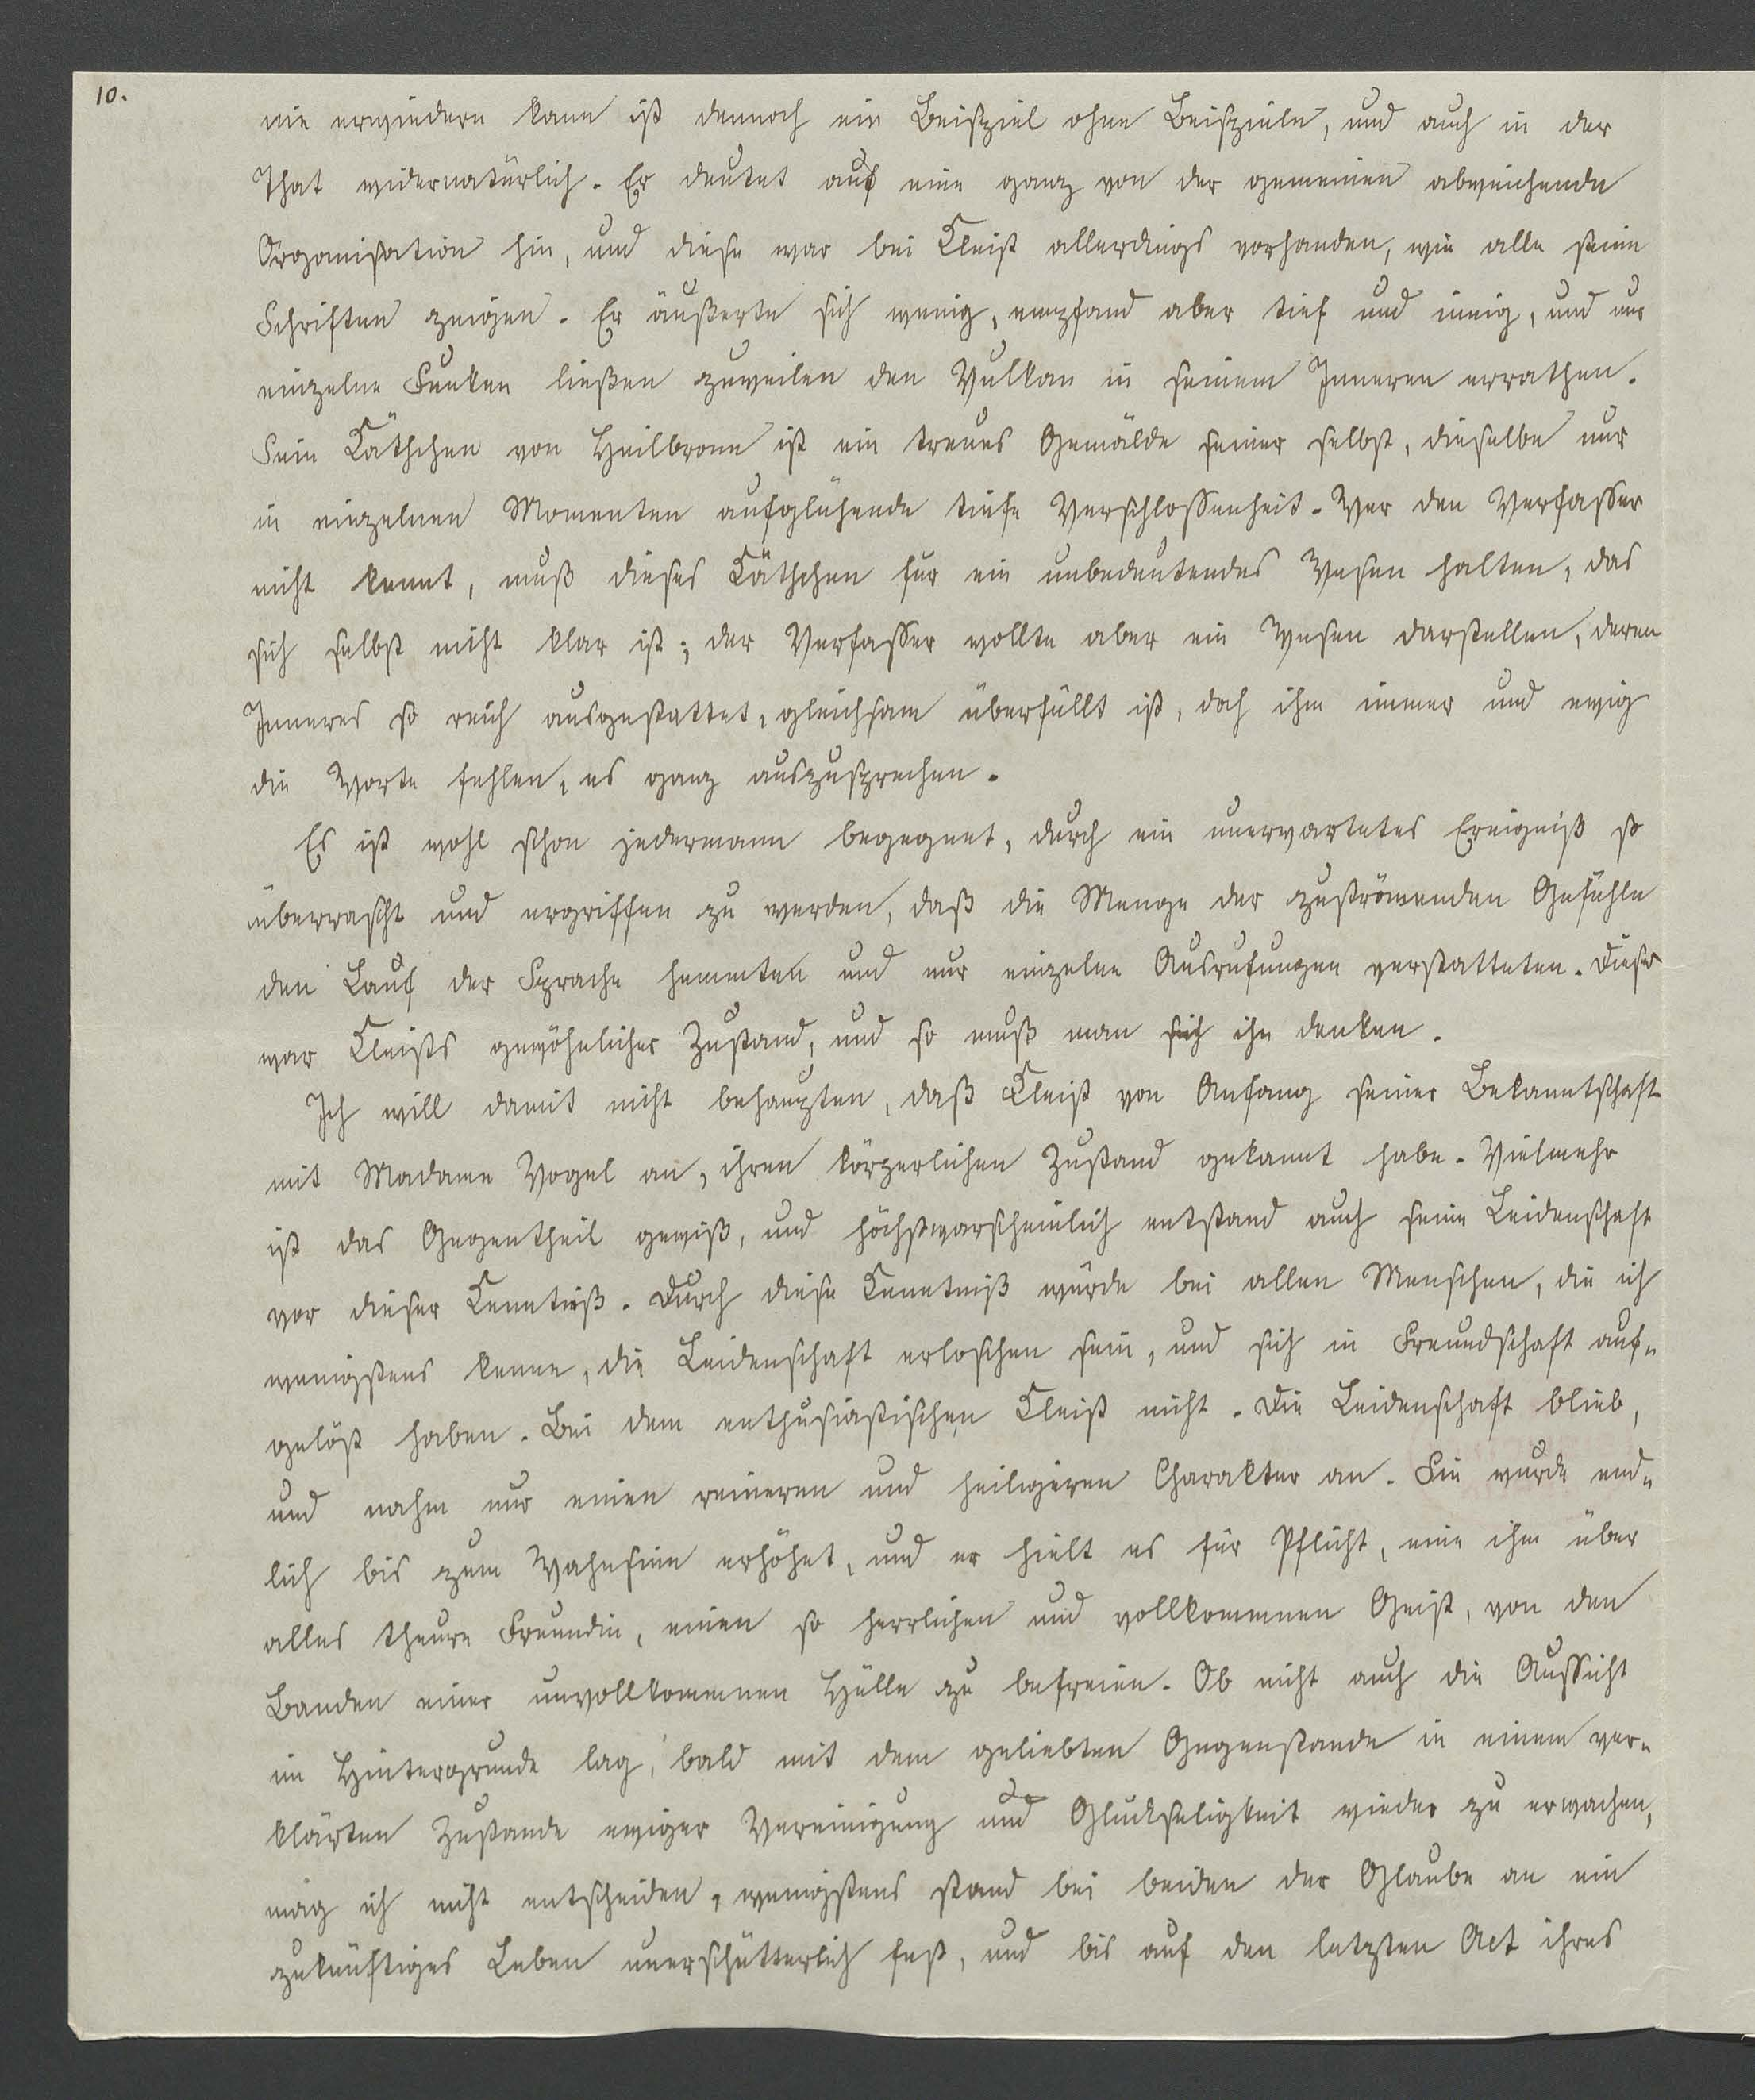 10.
nie erwiedern kann ist dennoch ein Beispiel ohne Beispiele, und auch in der
That widernatürlich. Er deutet auf eine ganz von der gemeinen abweichende
Organisation hin, und diese war bei Kleist allerdings vorhanden, wie alle seine
Schriften zeigen. Er äußerte sich wenig, empfand aber tief und innig, und nur
einzelne Funken ließen zuweilen den Vulkan in seinem Inneren errathen.
Sein Käthchen von Heilbronn ist ein treues Gemälde seiner selbst, dieselbe nur
in einzelnen Momenten aufglühende tiefe Verschlossenheit. Wer den Verfasser
nicht kennt, muß dieses Käthchen für ein unbedeutendes Wesen halten, das
sich selbst nicht klar ist; der Verfasser wollte aber ein Wesen darstellen, deren
Inneres so reich ausgestattet, gleichsam überfüllt ist, doch ihm immer und ewig
die Worte fehlen, es ganz auszusprechen.
Es ist wohl schon jedermann begegnet, durch ein unerwartetes Ereigniß so
überrascht und ergriffen zu werden, daß die Menge der zuströmenden Gefühle
den Lauf der Sprache hemmten und nur einzelne Ausrufungen verstatteten. Dieser
war Kleists gewöhnlicher Zustand, und so muß man sich ihn denken.
Ich will damit nicht behaupten, daß Kleist von Anfang seiner Bekanntschaft
mit Madame Vogel an, ihren körperlichen Zustand gekannt habe. Vielmehr
ist das Gegentheil gewiß, und höchstwarscheinlich entstand auch seine Leidenschaft
vor dieser Kenntniß. Durch diese Kenntniß würde bei allen Menschen, die ich
wenigstens kenne, die Leidenschaft erloschen sein, und sich in Freundschaft auf-
gelößt haben. Bei dem enthusiastischen Kleist nicht. Die Leidenschaft blieb,
und nahm nur einen reineren und heiligeren Charakter an. Sie wurde end-
lich bis zum Wahnsinn erhöhet, und er hielt es für Pflicht, eine ihm über
alles theure Freundin, einen so herrlichen und vollkommnen Geist, von den
Banden einer unvollkommnen Hülle zu befreien. Ob nicht auch die Aussicht
im Hintergrunde lag, bald mit dem geliebten Gegenstande in einem ver-
klärten Zustande ewiger Vereinigung und Glückseligkeit wieder zu erwachen,
mag ich nicht entscheiden, wenigstens stand bei beiden der Glaube an ein
zukünftiges Leben unerschütterlich fest, und bis auf den letzten Act ihres